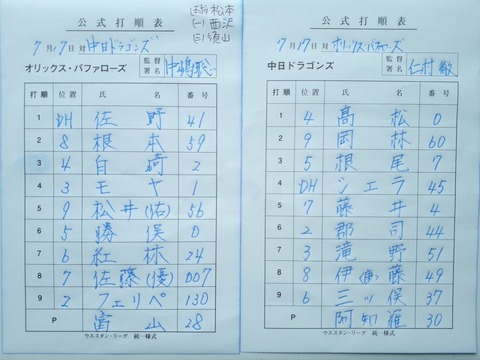 公式打順表
7月17日 対 中日ドラゴンズ
オリックス・バファローズ 監督署名 中嶋聡
打順 位置 氏名 番号
1 DH 佐野 41
2 8 根本 59
3 4 白崎 2
4 3 モヤ 1
5 9 松井(佑) 56
6 5 勝俣 0
7 6 紅林 24
8 7 佐藤(優) 007
9 2 フェリペ 130
P 富山 28
ウエスタン・リーグ 統一様式
松本
(一) 西沢
(三) 須山
公式打順表
7月17日 対 オリックスバファローズ
中日ドラゴンズ 監督署名 仁村徹
打順 位置 氏名 番号
1 4 髙松 0
2 9 岡林 60
3 5 根尾 7
4 DH シエラ 45
5 7 藤井 4
6 2 郡司 44
7 3 滝野 51
8 8 伊藤(康) 49
9 6 三ッ俣 37
P 阿知羅 30
ウエスタン・リーグ 統一様式